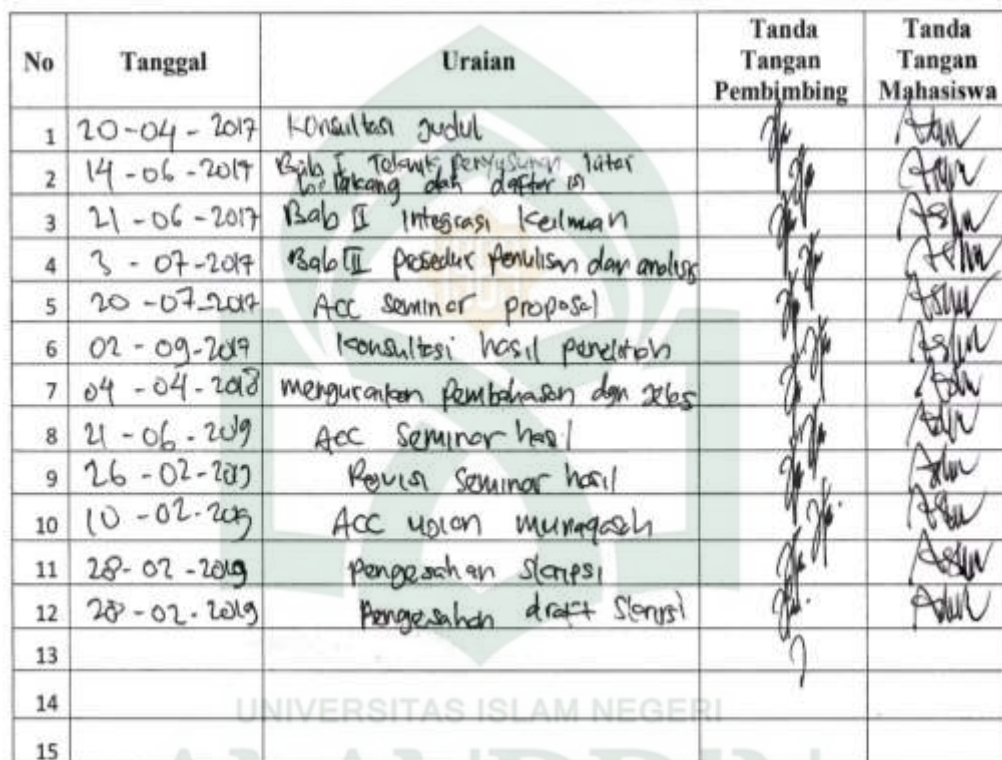 No Tanggal Uraian Tanda Tangan Pembimbing Tanda Tangan Mahasiswa
1 20-04-2017 Konsultasi Judul
2 14-06-2017 Bab I Teknik penyusunan latar
belakang dan daftar isi
3 21-06-2017 Bab II Integrasi Keilmuan
4 3-07-2017 Bab III prosedur Penulisan dan analisis
5 20-07-2017 ACC seminar proposal
6 02-09-2017 Konsultasi hasil penelitian
7 04-04-2018 menguraikan Pembahasan dgn Jelas
8 21-06-2019 Acc Seminar hasil
9 26-02- Revisi Seminar hasil
10 10-02-2019 ACC ujian munaqasah
11 28-02-2019 pengesahan skripsi
12 28-02-2019 Pengesahan draft skripsi
13
14
15
UNIVERSITAS ISLAM NEGERI